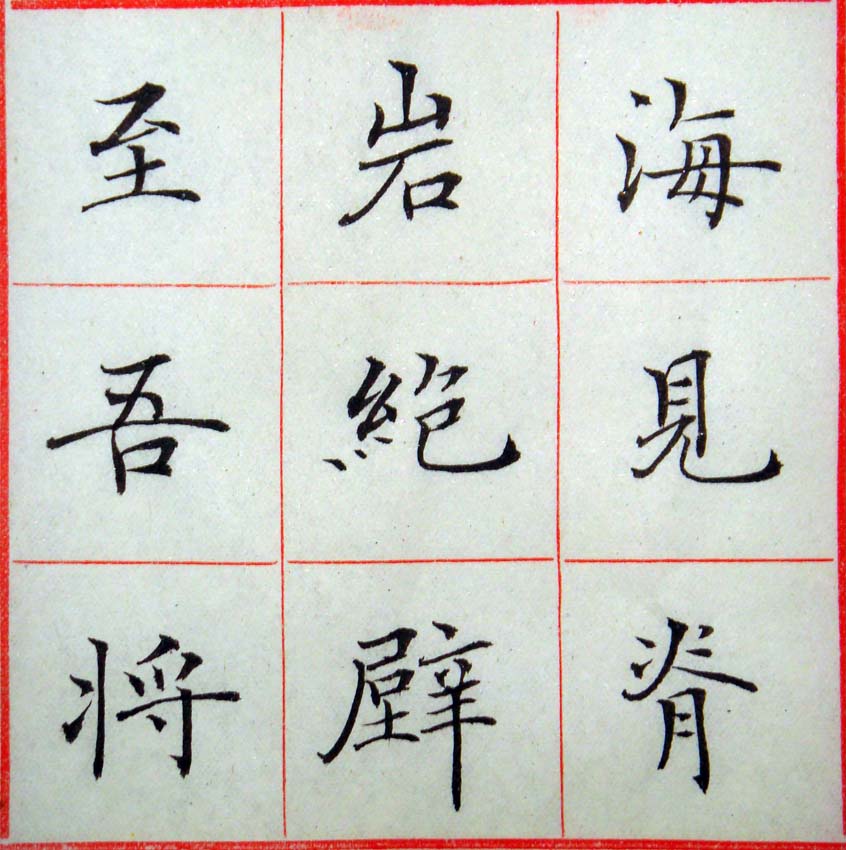 海見脊
岩絶壁
至吾将